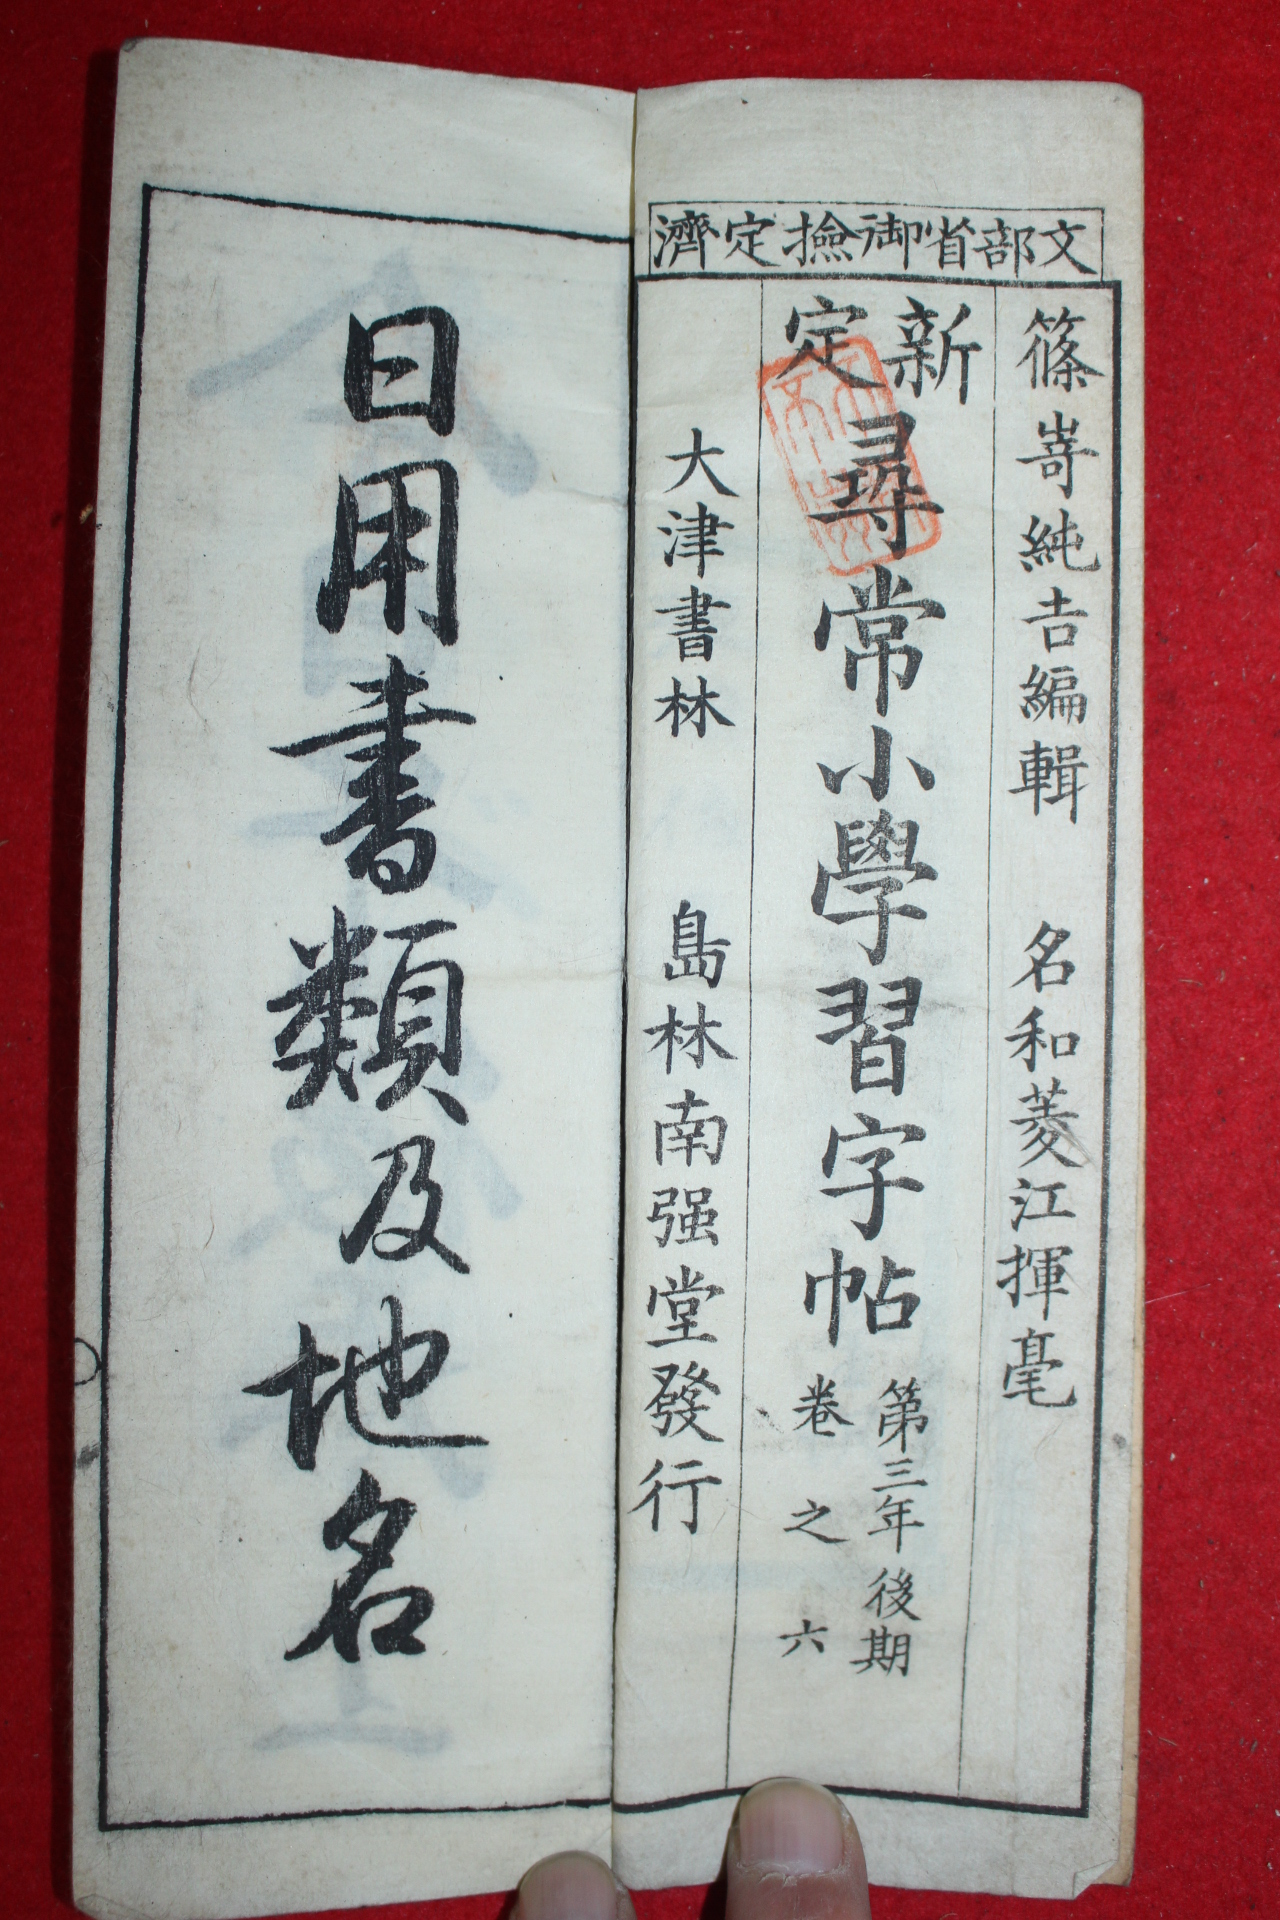 文部省御撿定濟
篠嵜純吉編輯　名和菱江揮毫
新定尋常小學習字帖
第三年後期
卷之六
大津書林　島林南强堂發行
日用書類及地名